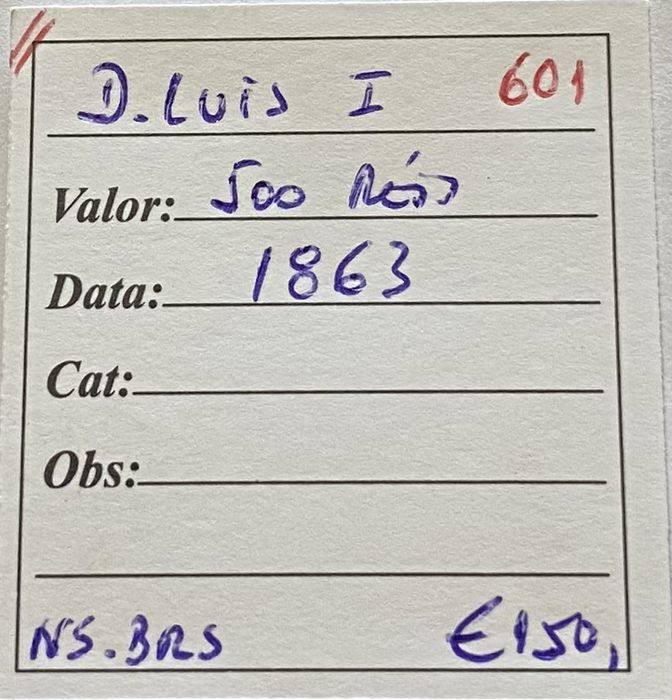 D. Luis I 601
Valor: 500 Réis
Data: 1863
Cat:
Obs:
NS. BRS €150,